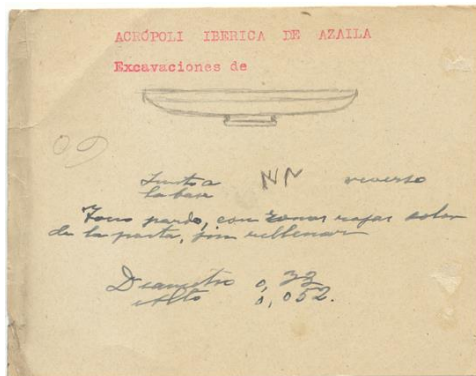 ACRÓPOLI IBERICA DE AZAILA
Excavaciones de
Junto a
la base
NN reverso
Tono pardo, con zonas rojas
de la pasta, sin rellenar
Diametro 0,33
Alto 0,052.